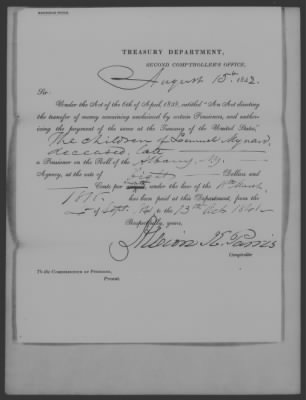 TREASURY DEPARTMENT,
SECOND COMPTROLLER'S OFFICE,
August 15th 1842
Sir:
Under the Act of the 6th of April, 1838, entitled "An Act directing
the transfer of money remaining unclaimed by certain Pensioners, and author-
izing the payment of the same at the Treasury of the United States,"
The children of Lemuel
deceased, late
a Pensioner on the Roll of the Albany, Ny.
Agency, at the rate of Eight Dollars and
Cents per month, under the law of the 18th March
1818, has been paid at this Department, from the
of Sept. to the 13th
Respectfully, yours,
Albion K. Parris
Comptroller
To the Commissioner of Pensions,
Present.